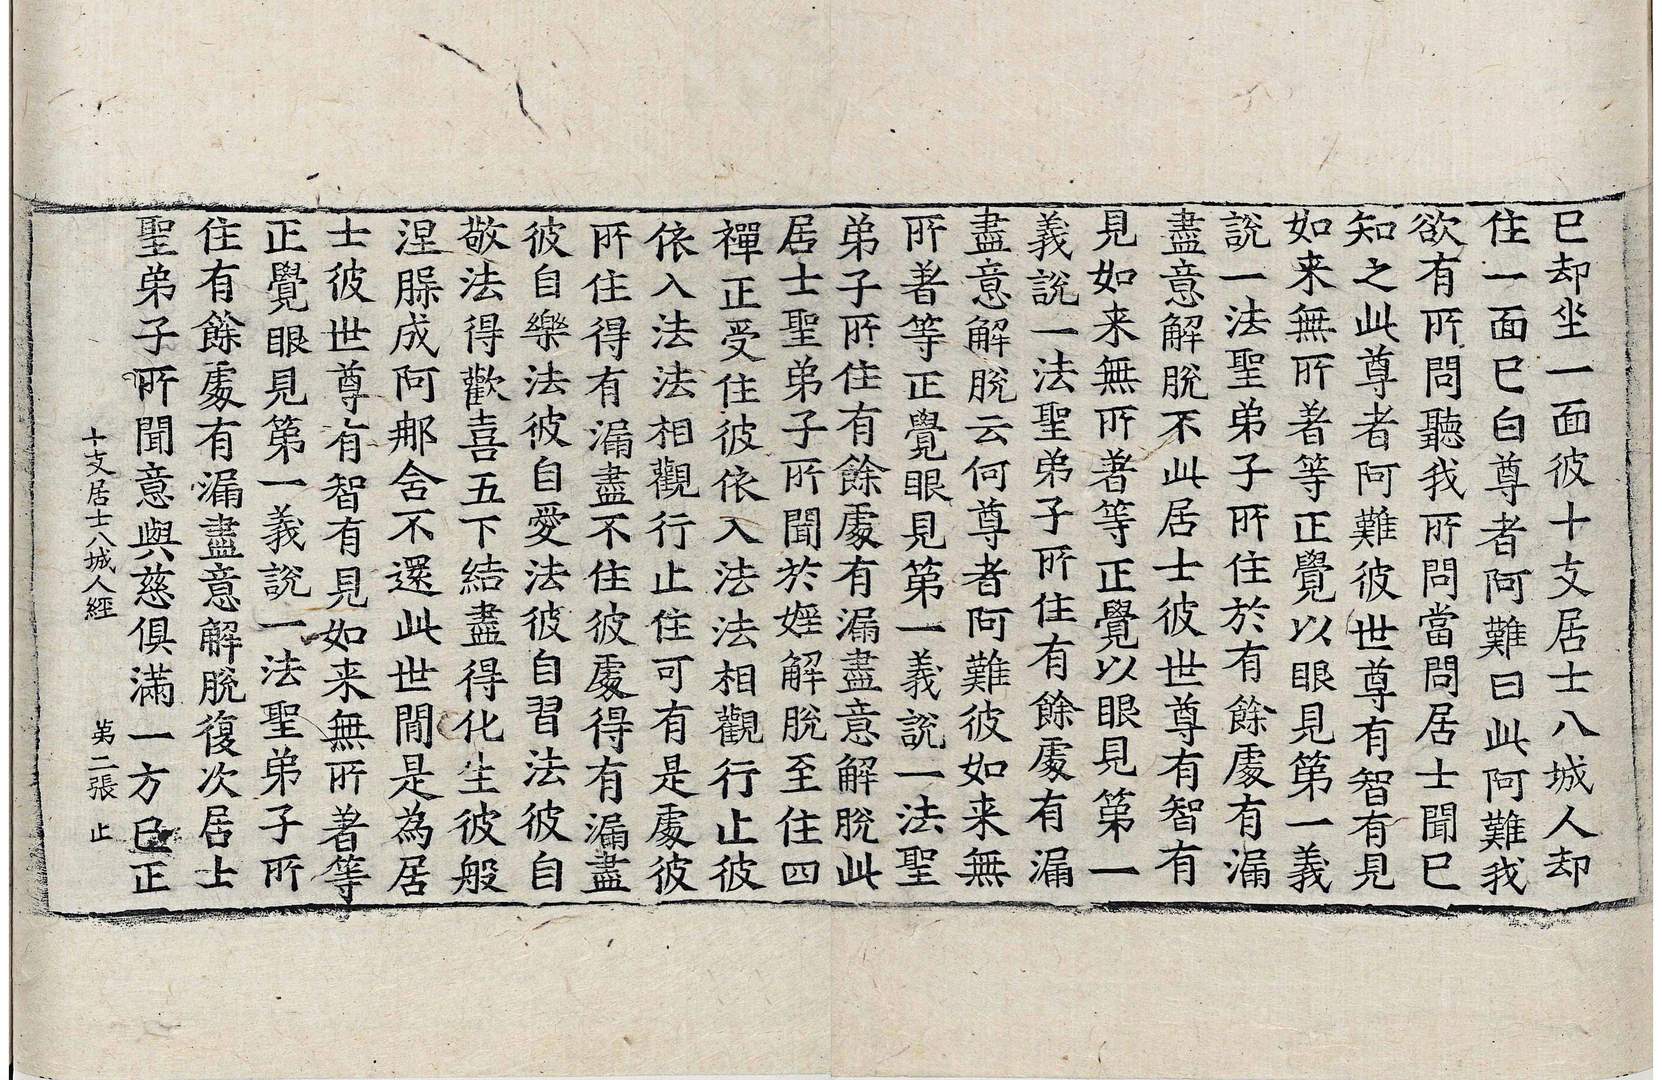 已却坐一面彼十攴居士八城人却
住一面已白尊者阿難曰此阿難我
欲有所問聽我所問當問居士聞已
知之此尊者阿難彼世尊有智有見
如来無所著等正覺以眼見第一義
說一法聖弟子所住於有餘處有漏
盡意解脫不此居士彼世尊有智有
見如来無所著等正覺以眼見第一
義說一法聖弟子所住有餘處有漏
盡意解脫云何尊者阿難彼如来無
所著等正覺眼見第一義說一法聖
弟子所住有餘處有漏盡意解脫此
居士聖弟子所聞於婬解脫至住四
禪正受住彼依入法法相觀行止彼
依入法法相觀行止住可有是處彼
所住得有漏盡不住彼處得有漏盡
彼自樂法彼自愛法彼自習法彼自
敬法得歡喜五下結盡得化生彼般
涅腺成阿那含不還此世間是為居
士彼世尊有智有見如来無所著等
正覺眼見第一義說一法聖弟子所
住有餘處有漏盡意解脫復次居士
聖弟子所聞意與慈俱滿一方已正
十攴居士八城人經 第二張 止